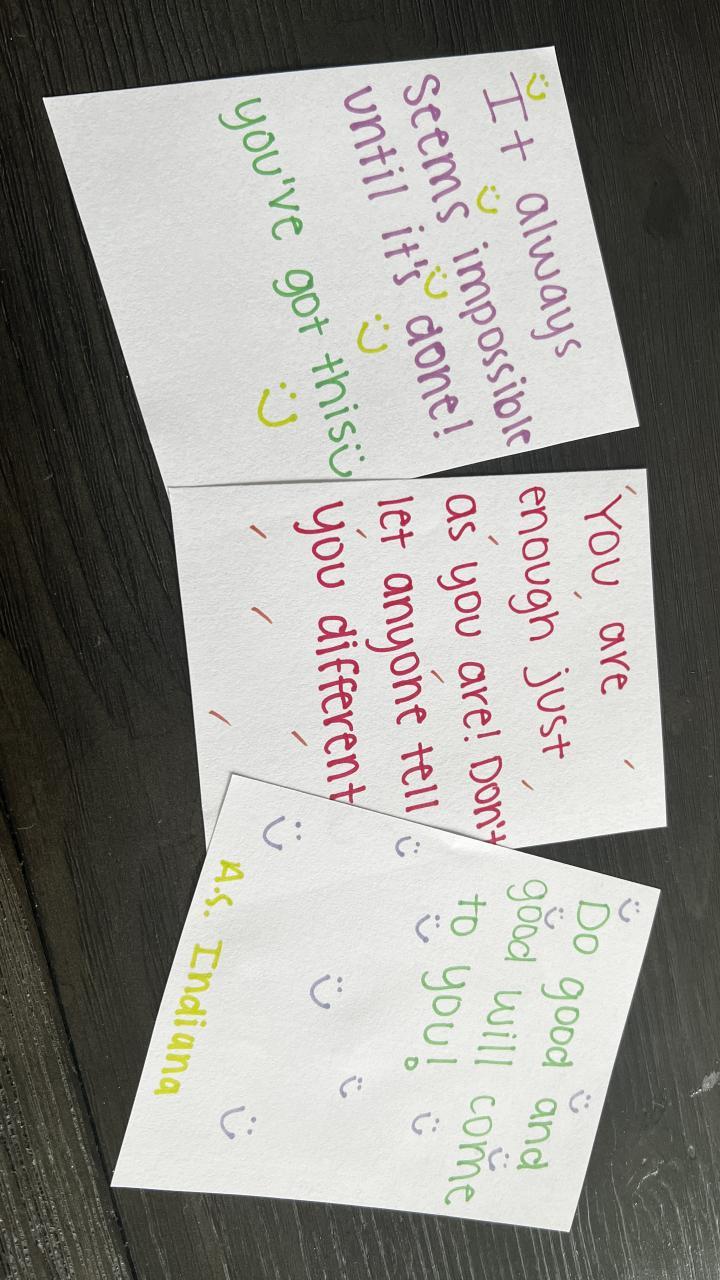 It always
seems impossible
until it's done!
you've got this
You are
enough just
as you are! Don't
let anyone tell
you different
Do good and
good will come
to you!
A.S. Indiana